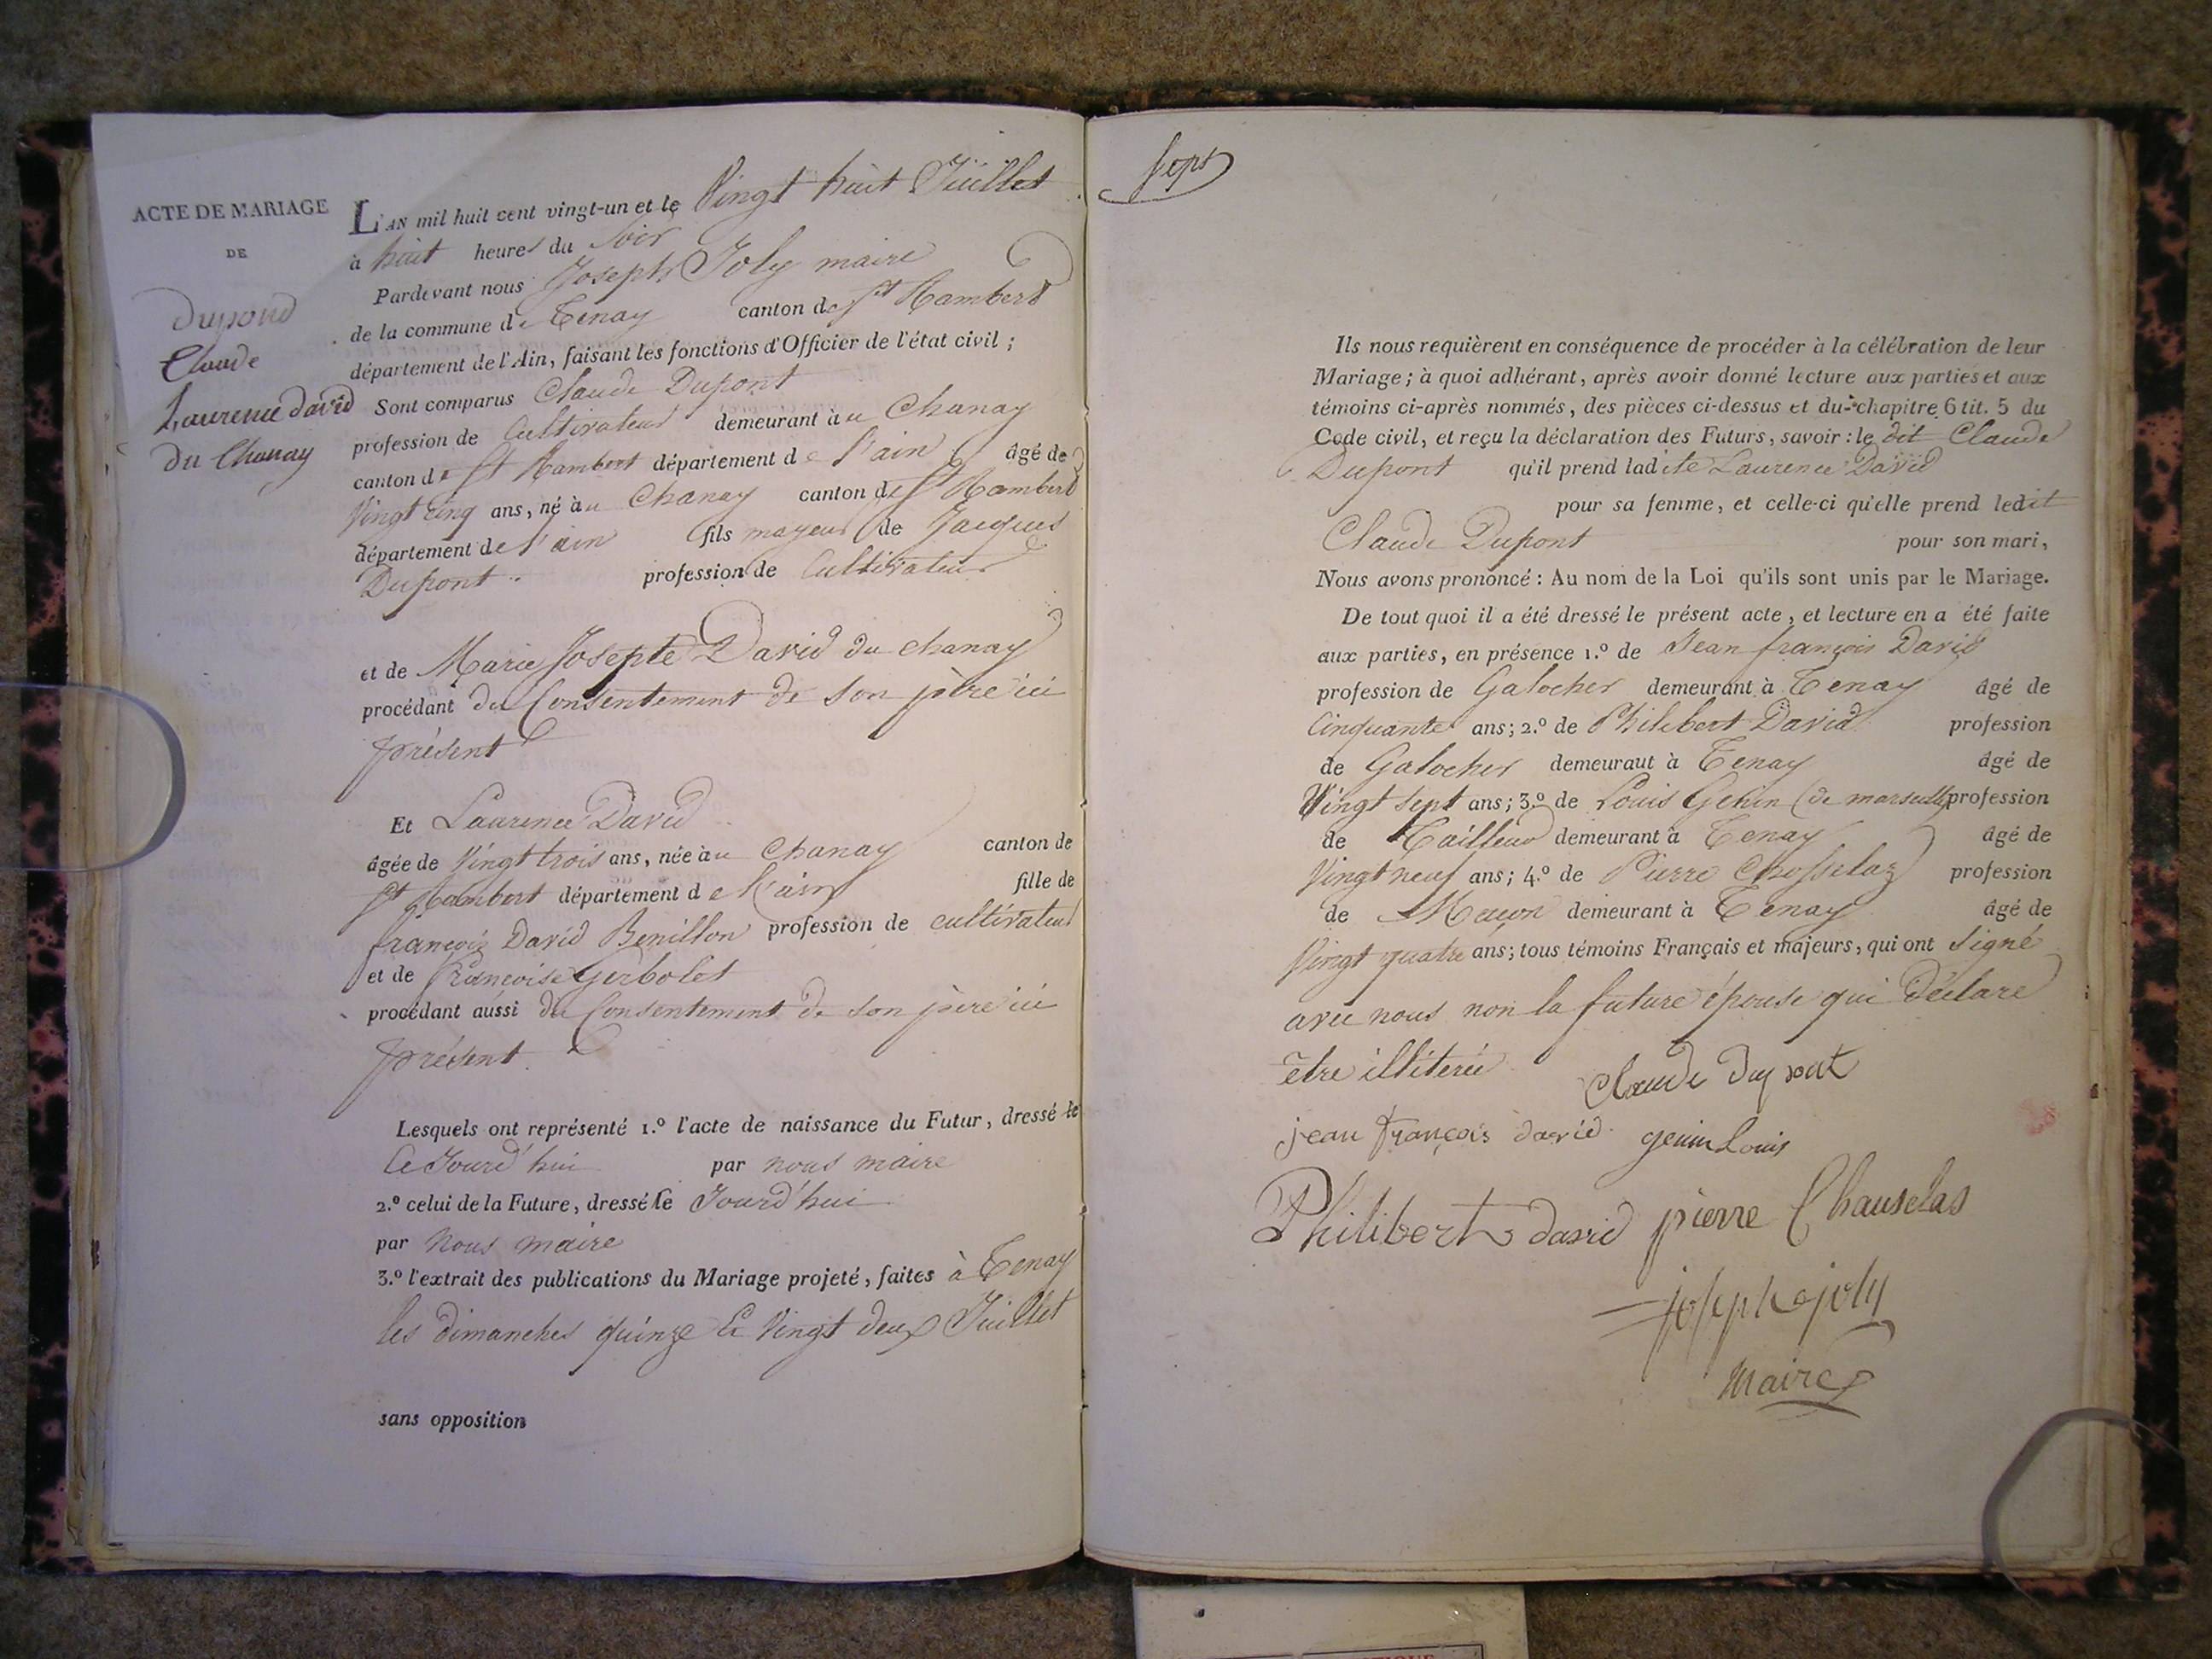 ACTE DE MARIAGE
DE
Dupond
Claude
Laurence david
du Chanay
L'AN mil huit cent vingt-un et le Vingt huit Juillet
à huit heures du Soir
Pardevant nous Joseph Joly maire
de la commune de Tenay canton de St Rambert
département de l'Ain, faisant les fonctions d'Officier de l'état civil ;
Sont comparus Claude Dupont
profession de Cultivateur demeurant àu Chanay
canton de St Rambert département de l'ain âgé de
Vingt cinq ans, né àu Chanay canton de St Rambert
département de l'ain fils majeur de Jacques
Dupont profession de Cultivateur
et de Marie Josepte David du chanay
procédant du Consentement de son père ici
présent
Et Laurence David
âgée de Vingt trois ans, née àu Chanay canton de
St Rambert département de l'ain fille de
françois David Benillon profession de cultivateur
et de françoise Gerbolet
procédant aussi du Consentement de son père ici
présent.
Lesquels ont représenté 1.º l'acte de naissance du Futur, dressé le
Ce Jourd'hui par nous maire
2.º celui de la Future, dressé ce Jourd'hui
par Nous maire
3.º l'extrait des publications du Mariage projeté, faites à Tenay
les dimanches quinze & Vingt deux Juillet
sans opposition
Sept
Ils nous requièrent en conséquence de procéder à la célébration de leur
Mariage ; à quoi adhérant, après avoir donné lecture aux parties et aux
témoins ci-après nommés, des pièces ci-dessus et du chapitre 6 tit. 5 du
Code civil, et reçu la déclaration des Futurs, savoir : le dit Claude
Dupont qu'il prend ladite Laurence David
pour sa femme, et celle-ci qu'elle prend ledit
Claude Dupont pour son mari,
Nous avons prononcé : Au nom de la Loi qu'ils sont unis par le Mariage.
De tout quoi il a été dressé le présent acte, et lecture en a été faite
aux parties, en présence 1.º de Jean françois David
profession de Galocher demeurant à Tenay âgé de
Cinquante ans ; 2.º de Philibert David profession
de Galocher demeuraut à Tenay âgé de
Vingt sept ans ; 3.º de Louis Genin (de marseille) profession
de Tailleur demeurant à Tenay âgé de
Vingt neuf ans ; 4.º de Pierre Chosselaz profession
de Macon demeurant à Tenay âgé de
Vingt quatre ans ; tous témoins Français et majeurs, qui ont signé
avec nous non la future épouse qui déclare
être illiterée
Claude dupont
jean françois david genin Louis
Philibert david pierre Chauselas
joseph joly
maire